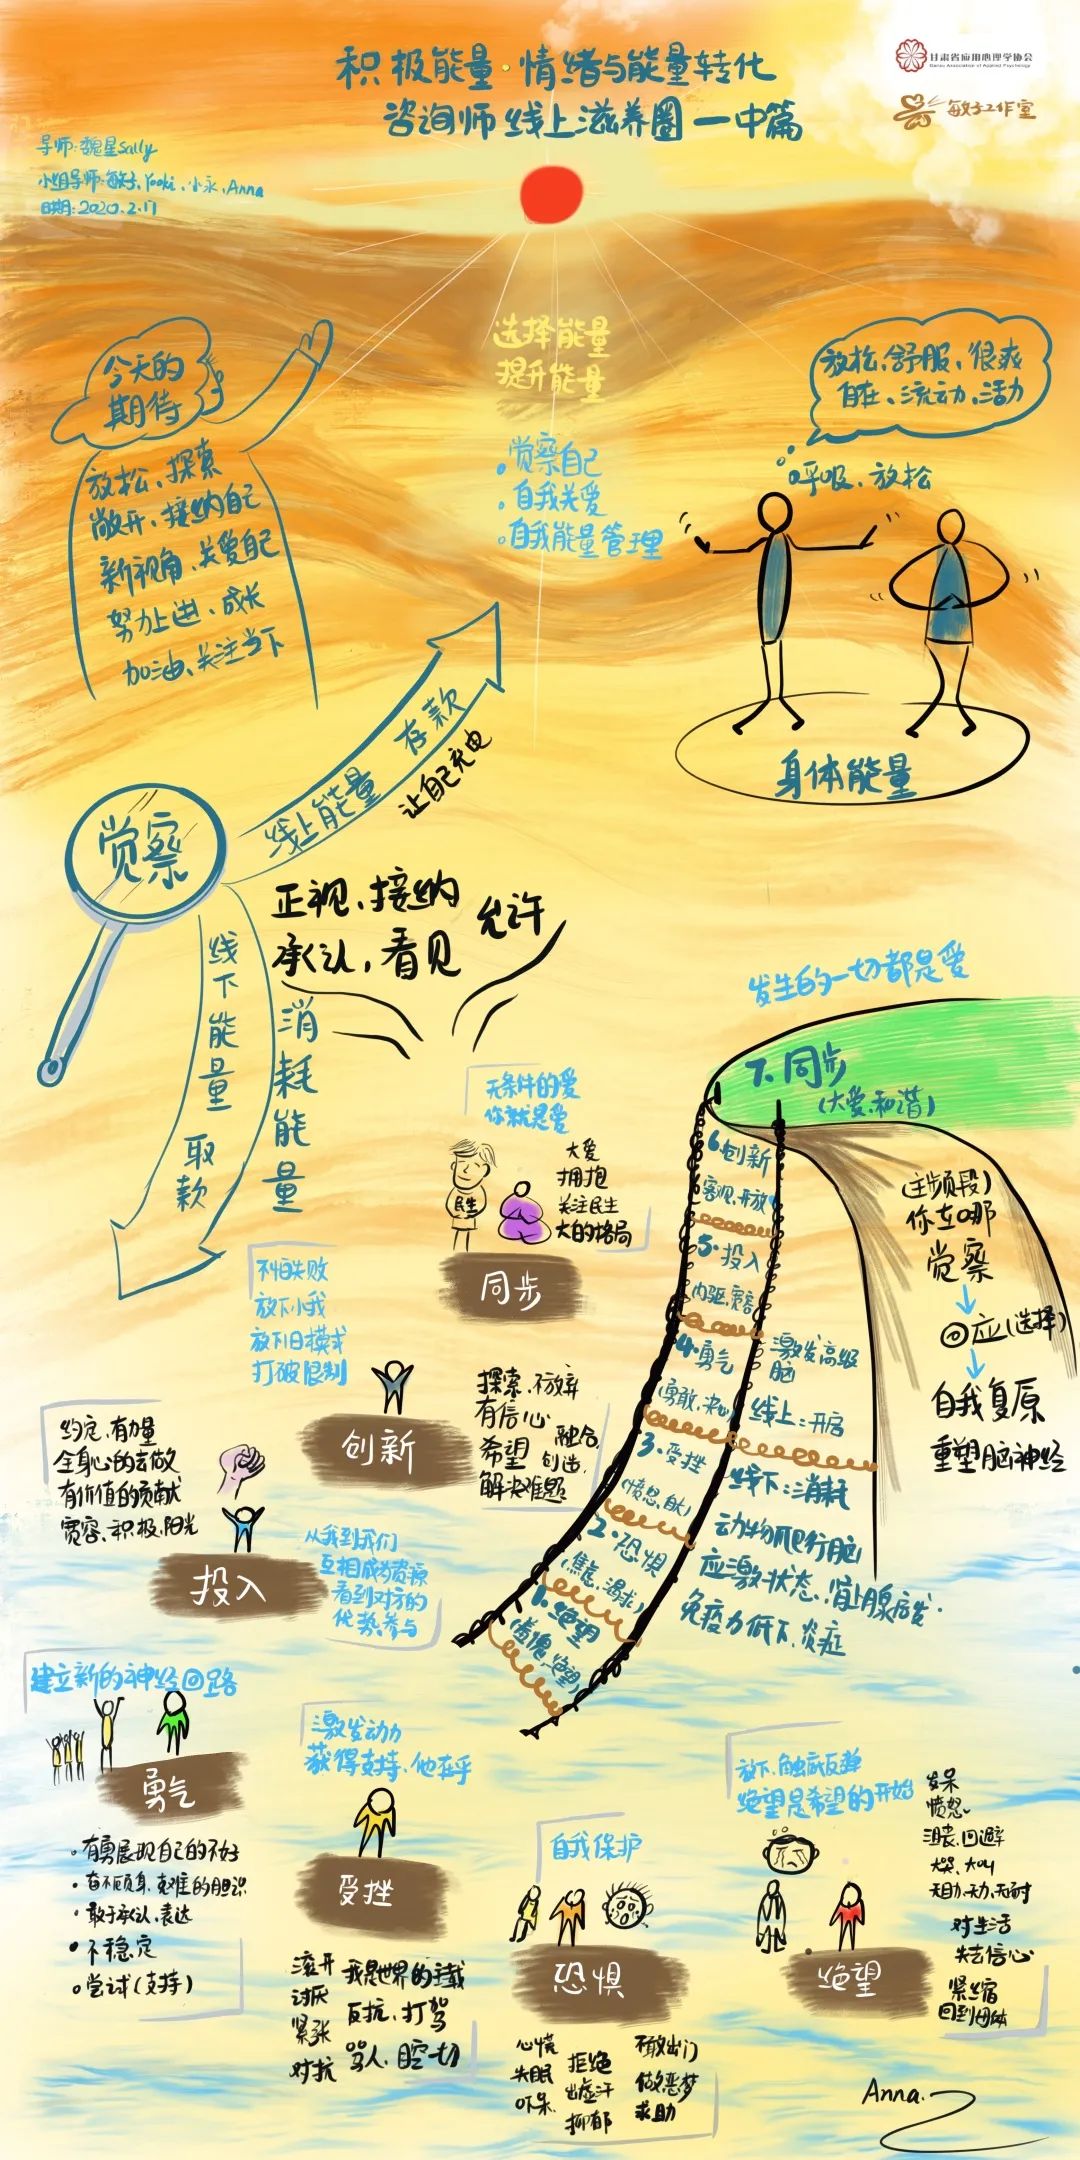 积极能量·情绪与能量转化
咨询师线上滋养圈一中篇
甘肃省应用心理学协会
Gansu Association of Applied Psychology
敏子工作室
导师:魏星Sally
小组导师:敏子、Yooki、小永、Anna
日期:2020.2.17
选择能量
提升能量
觉察自己
自我关爱
自我能量管理
今天的
期待
放松、探索
敞开、接纳自己
新视角、关爱自己
努力上进、成长
加油、关注当下
放松、舒服、很爽
自在、流动、活力
呼吸、放松
身体能量
觉察
线上能量 存款
让自己充电
线下能量 取款
消耗能量
正视、接纳
承认,看见
允许
发生的一切都是爱
7.同步
(大爱、和谐)
6.创新
客观、开放
5.投入
内驱、宽容
4.勇气
(勇敢、决心)
3.受挫
(愤怒、自大)
2.恐惧
(焦虑、渴求)
1.绝望
(羞愧、绝望)
激发高级
脑
线上:开启
线下:消耗
动物爬行脑
应激状态、肾上腺启发.
免疫力低下、炎症
(主频段)
你在哪
觉察
回应(选择)
自我复原
重塑脑神经
无条件的爱
你就是爱
民生
大爱
拥抱
关注民生
大的格局
同步
不怕失败
放下小我
放下旧模式
打破限制
创新
探索、不放弃
有信心
希望
融合
创造
解决难题
约定、有力量
全身心的去做
有价值的贡献
宽容、积极、阳光
投入
从我到我们
互相成为资源
看到对方的
优势参与
建立新的神经回路
勇气
有勇展现自己的不好
奋不顾身、克难的胆识
敢于承认、表达
不稳定
尝试(支持)
激发动力
获得支持、他在乎
受挫
滚开
讨厌
紧张
对抗
我是世界的主载
反抗、打骂
骂人、
一切
自我保护
恐惧
心慌
失眠
吓呆
拒绝
出虚汗
抑郁
不敢出门
做恶梦
求助
放下、触底反弹
绝望是希望的开始
绝望
发呆
愤怒、
沮丧、回避
大哭、大叫
无助、无力、无耐
对生活
失去信心
紧缩
回到母体
Anna.